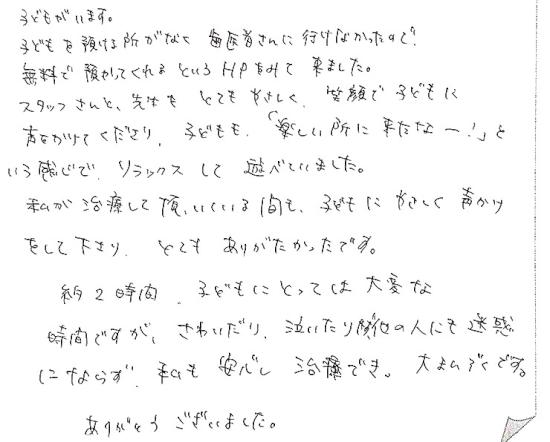 子どもがいます。
子どもを預ける所がなく 歯医者さんに行けなかったので、
無料で預かってくれるというHPをみて来ました。
スタッフさんと、先生も とてもやさしく、笑顔で子どもに
声をかけてくださり、子どもも、「楽しい所に来たなー！」と
いう感じで、リラックスして 遊べていました。
私が治療して頂いている間も、子どもにやさしく声かけ
をして下さり、とても ありがたかったです。
約2時間、子どもにとっては大変な
時間ですが、さわいだり、泣いたり 他の人にも迷惑
にならず、私も安心し 治療でき。大まんぞくです。
ありがとうございました。